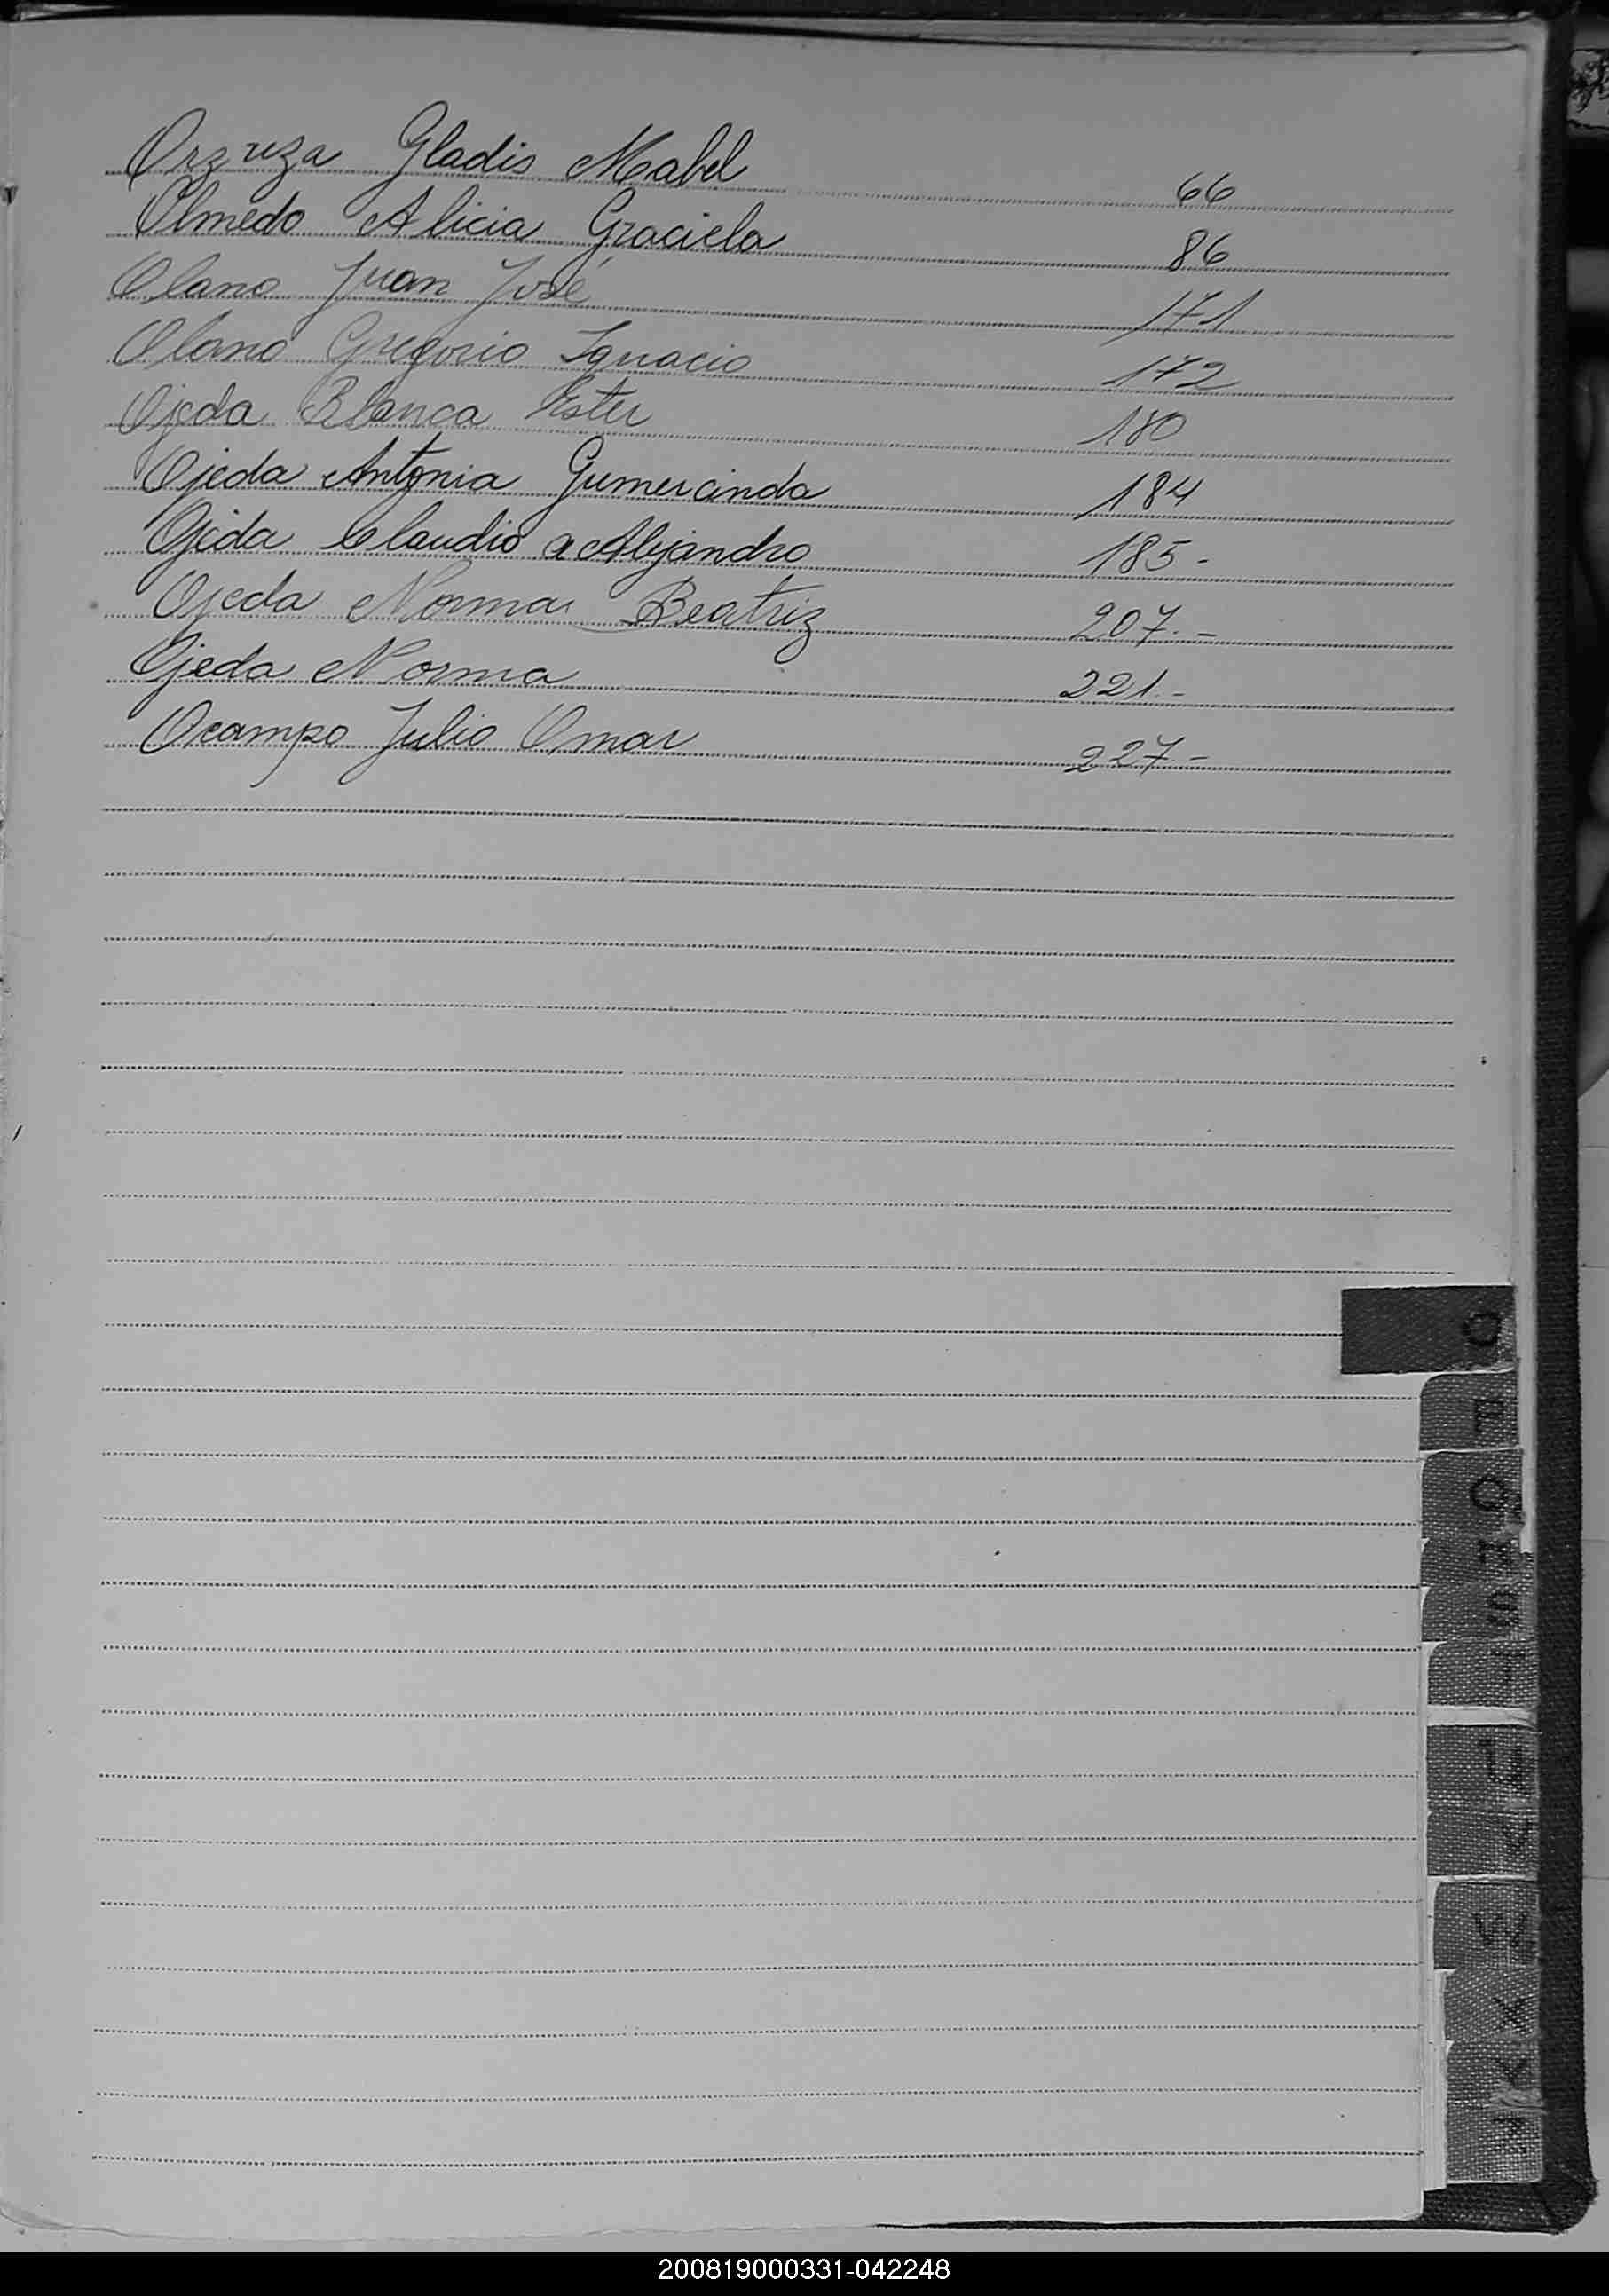 Orzuza Gladis Mabel 66
Olmedo Alicia Graciela 86
Olano Juan José 171
Olano Gregorio Ignacio 172
Ojeda Blanca Ester 180
Ojeda Antonia Gumercinda 184
Ojeda Claudio Alejandro 185-
Ojeda Norma Beatriz 207.-
Ojeda Norma 221.-
Ocampo Julio Omar 227-
O
P
Q
R
S
T
U
V
W
X
Y
Z
200819000331-042248